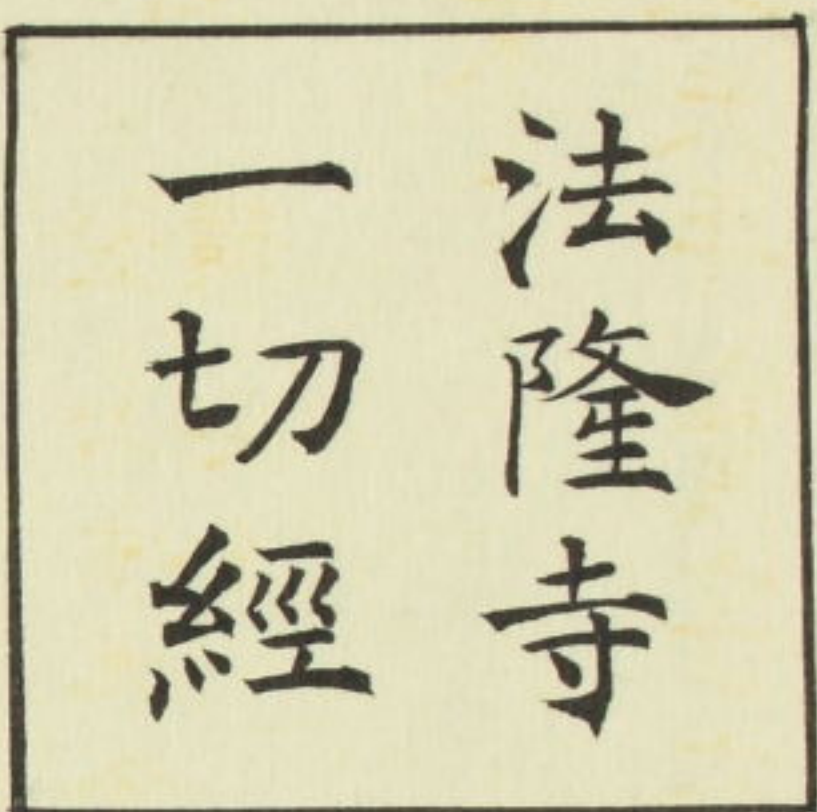 法隆寺
一切經